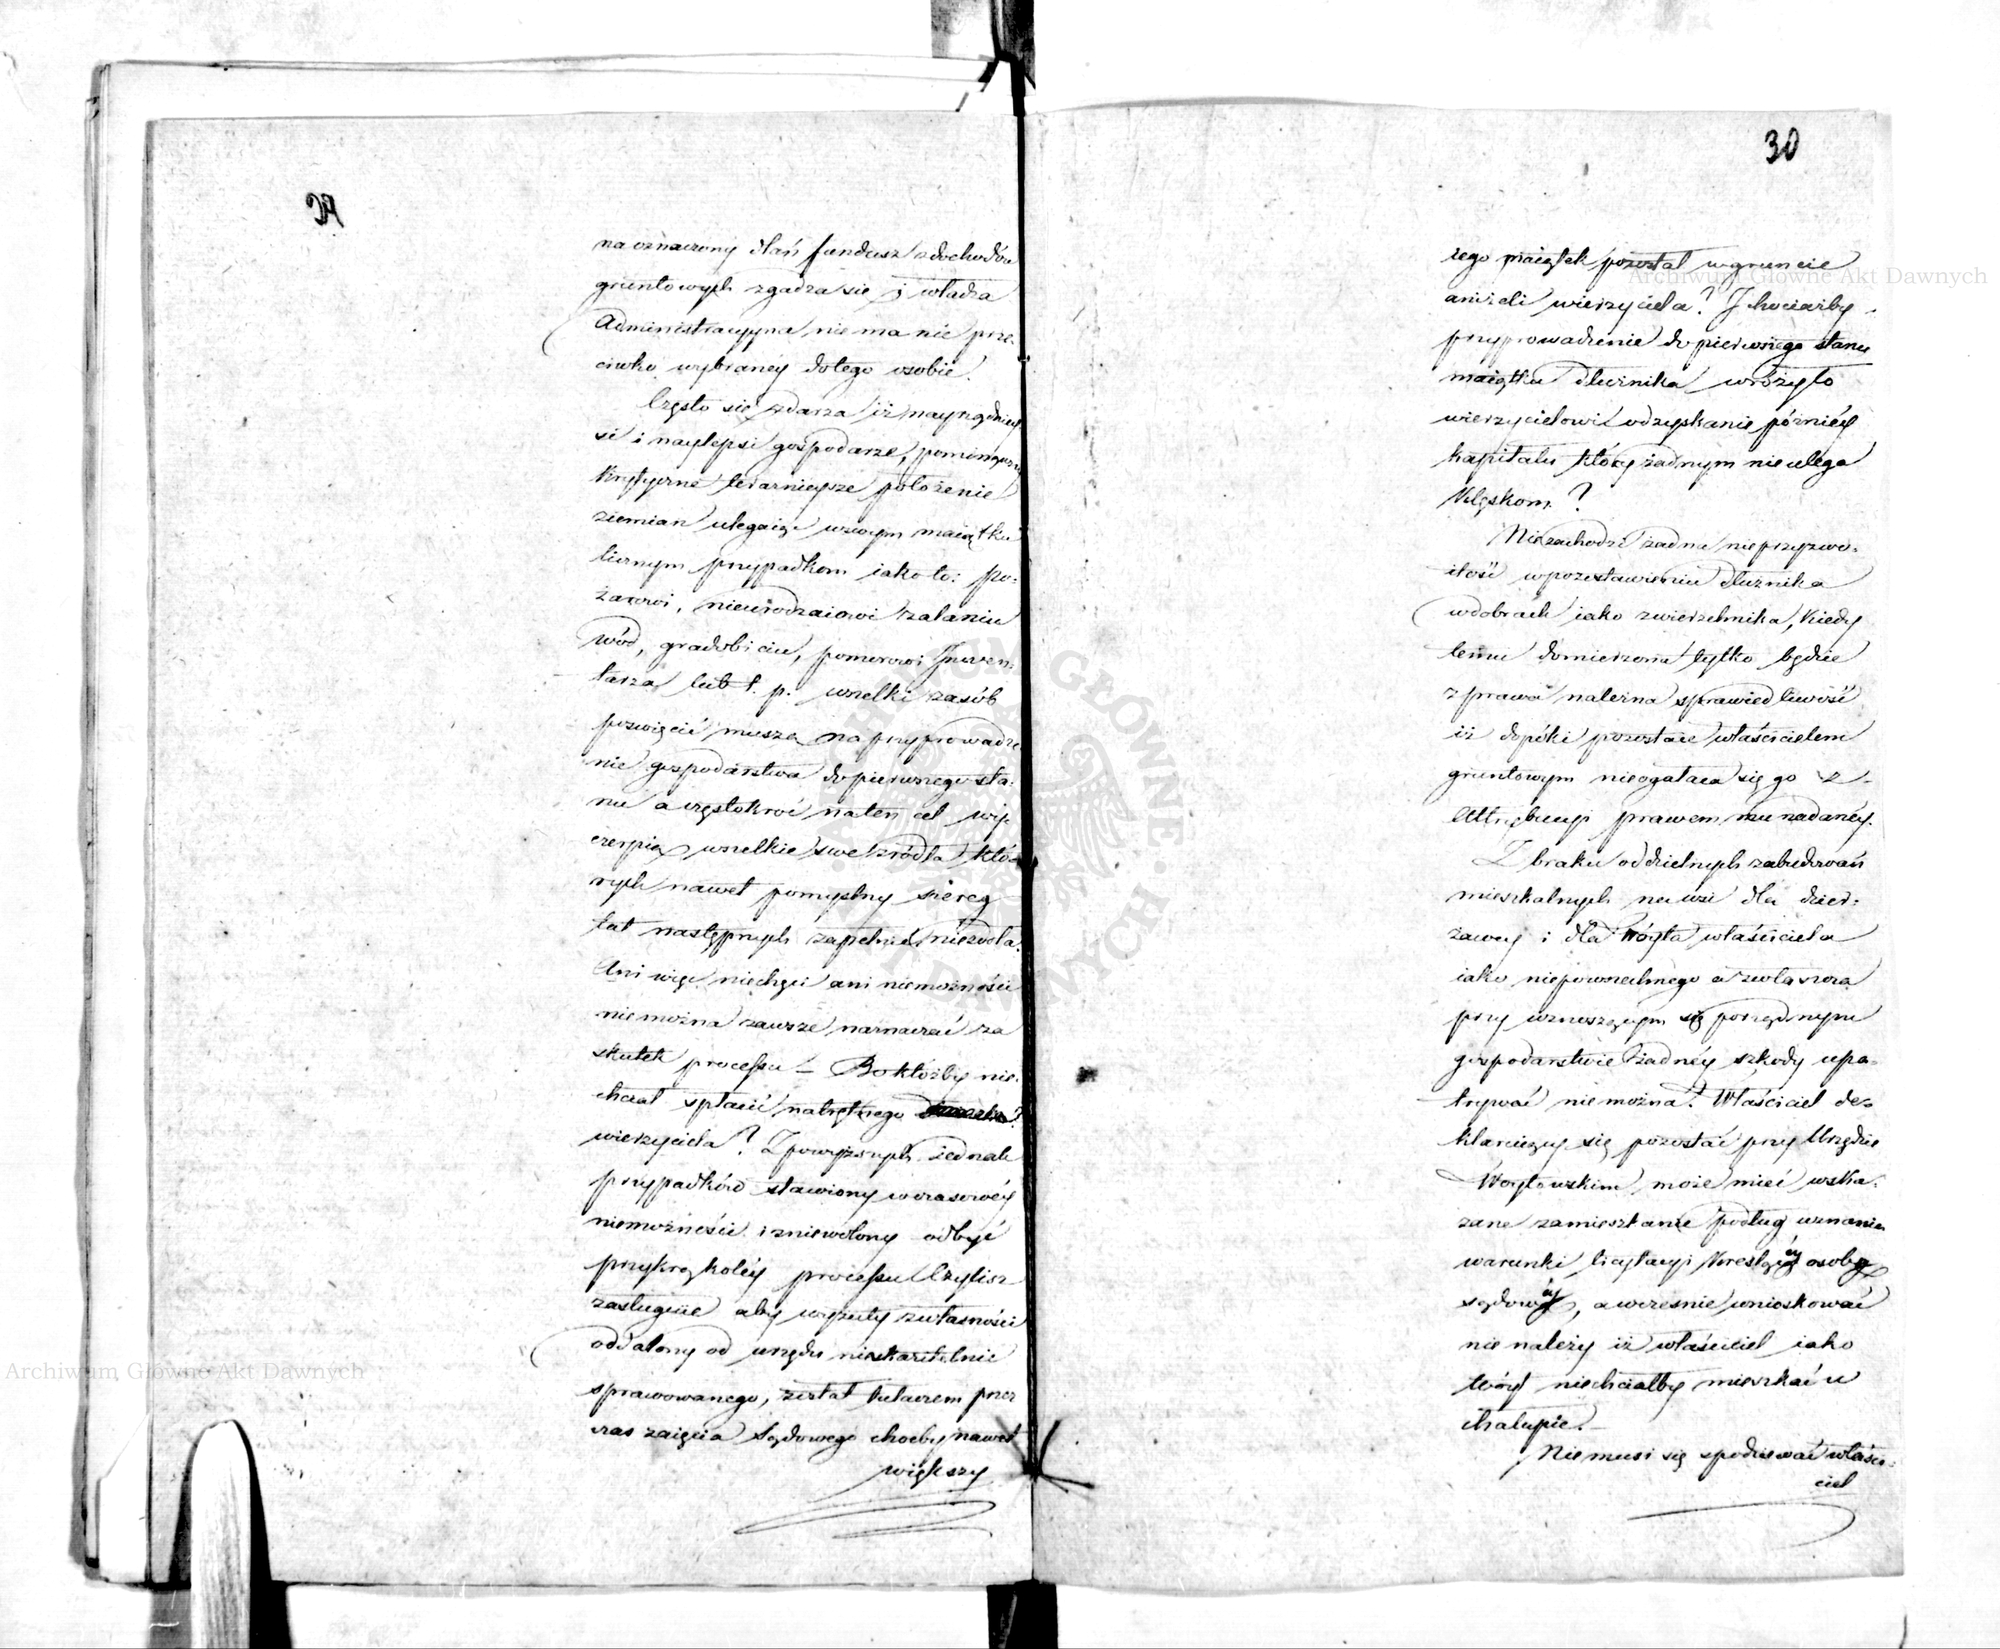 na oznaczony dlań fundusz z dochodów
gruntowych zgadza się i władza
Administracyjna nie ma nic prze-
ciwko wybraney do tego osobie.
Często się zdarza iż nayrządniey
si i naylepsi gospodarze, pominąwszy
krytyczne teraznieysze położenie
ziemian ulegaiąc w swym maiątku
licznym przypadkom iako to: Po-
żarowi, nieurodzaiowi zalaniu
wód, gradobiciu, pomorowi Inwen-
tarza lub t. p. wszelki zasób
poswięcić muszą na przyprowadze
nie gospodarstwa do pierwszego sta-
nu a częstokroć na ten cel wy
czerpią wszelkie swe źródła któ-
rych nawet pomyślny szereg
lat następnych zapełnić niezdoła.
Ani więc niechęci ani niemożności
nie można zawsze naznaczać za
skutek processu – Bo któżby nie
chciał spłacić natrętnego
wierzyciela? Z powyższych iednak
przypadków stawiony w czasowéy
niemożności i zniewolony odbyć
przykrą koléy processu Czyliż
zasługuie aby wyzuty z własności
oddalony od urzędu nieskazitelnie
sprawowanego, został tułaczem przez
czas zaięcia Sądowego choćby nawet
większy
30
iego maiątek pozostał w gruncie
aniżeli wierzyciela? I chociażby
przyprowadzenie do pierwszego stanu
maiątku dłużnika wróżyło
wierzycielowi odzyskanie późniéy
kapitału który żadnym nieulega
klęskom?
Nie zachodzi żadna nieprzyzwo-
itość w pozostawieniu dłużnika
w dobrach iako zwierzchnika, kiedy
temu domierzona tylko będzie
z prawa należna sprawiedliwość
iż dopóki pozostaie właścicielem
gruntowym nieogałaca się go z
Attrybucyi prawem mu nadanéy.
Z braku oddzielnych zabudowań
mieszkalnych na wsi dla dzier-
żawcy i dla Wóyta właściciela
iako niepowszechnego a zwłaszcza
przy wznoszącym się porządnym
gospodarstwie żadnéy szkody upa-
trywać nie można. Właściciel de-
klaruiący się pozostać przy Urzędzie
Wóytowskim, może mieć wska-
zane zamieszkanie podług uznania
warunki licytacyi kreslącéy osoby
sądowéy, a wcześnie wnioskować
nie należy iż właściciel iako
Wóyt niechciałby mieszkać w
chałupie. –
Nie musi się spodziewać właści-
ciel
Archiwum Główne Akt Dawnych
Archiwum Główne Akt Dawnych
ARCHIWUM GŁÓWNE AKT DAWNYCH